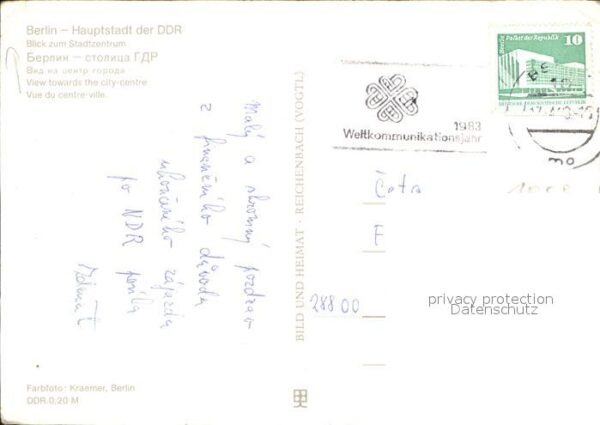 Berlin – Hauptstadt der DDR
Blick zum Stadtzentrum
Берлин – столица ГДР
Вид на центр города
View towards the city-centre
Vue du centre-ville.
Malý a skromný pozdrav
z finančního důvodu
ukončeného zájezdu
po NDR posílá
BILD UND HEIMAT · REICHENBACH (VOGTL)
Berlin Palast der Republik
10
DEUTSCHE DEMOKRATISCHE REPUBLIK
1983
Weltkommunikationsjahr
Četa
E
28800
privacy protection
Datenschutz
Farbfoto: Kraemer, Berlin
DDR 0,20 M